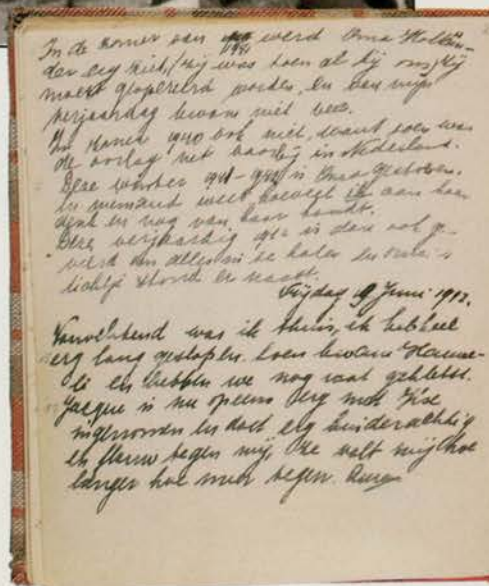 In de zomer van 1941 werd Oma Hollän-
der erg ziek, (zij was toen al bij ons) zij
moest geopereerd worden, en van mijn
verjaardag kwam niet veel.
In zomer 1940 ook niet, want toen was
de oorlog net voorbij in Nederland.
Deze winter 1941-1942 is Oma gestorven.
En niemand weet hoeveel ik aan haar
denk en nog van haar houdt.
Deze verjaardag 1942 is dan ook ge-
vierd om alles in te halen en oma's
lichtje stond er naast.
Vrijdag 19 Juni 1942.
Vanochtend was ik thuis, ik heb heel
erg lang geslapen, toen kwam Hanne-
li en hebben we nog wat gekletst.
Jacque is nu opeens erg met Ilse
ingenomen en doet erg kinderachtig
en flauw tegen mij, ze valt mij hoe
langer hoe meer tegen.